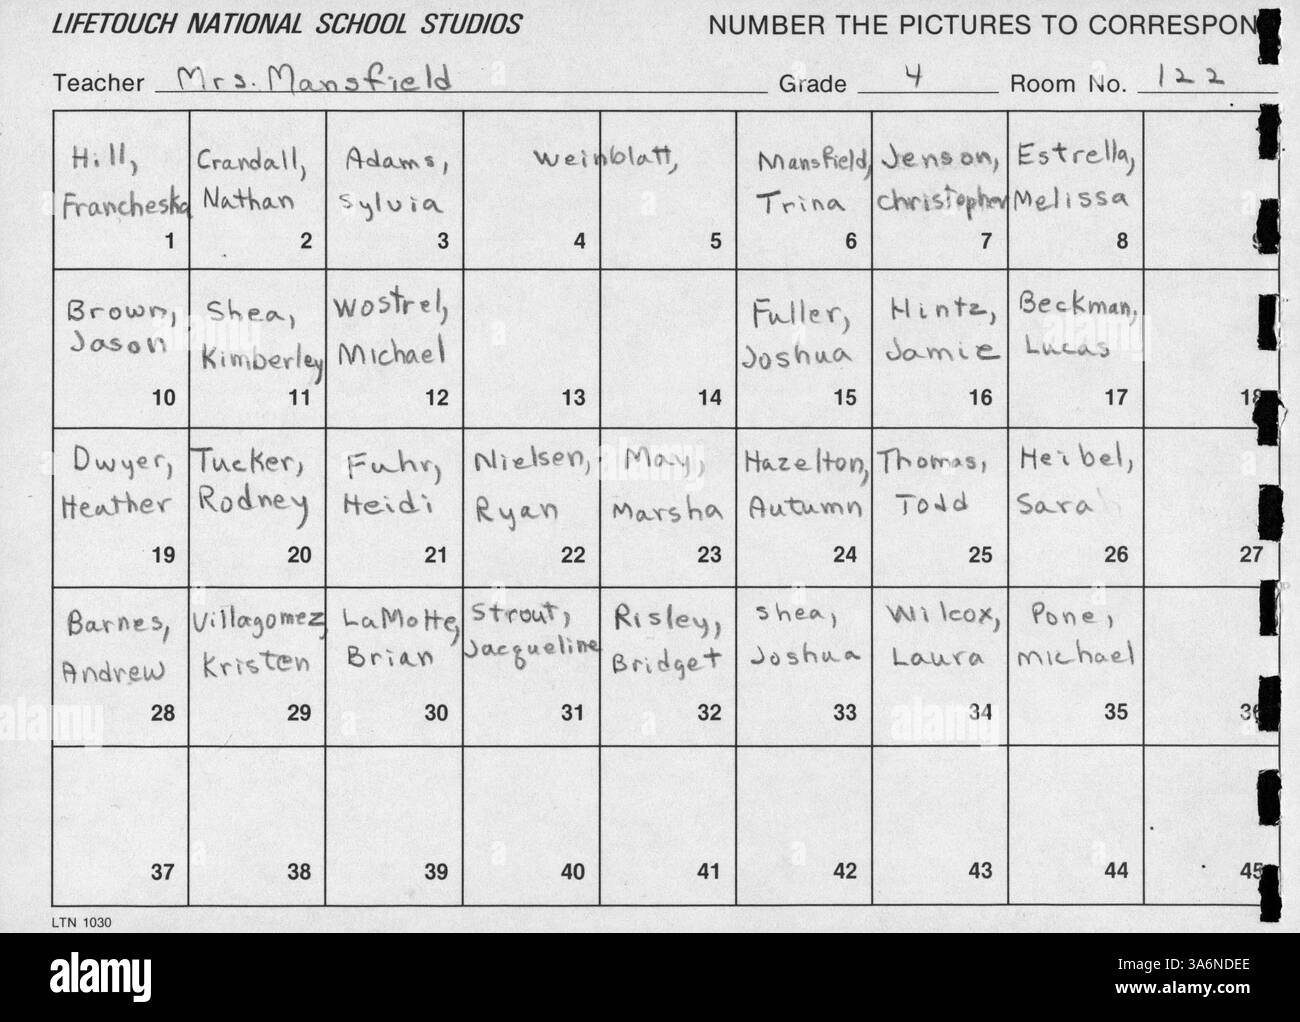 LIFETOUCH NATIONAL SCHOOL STUDIOS NUMBER THE PICTURES TO CORRESPON
Teacher Mrs. Mansfield Grade 4 Room No. 122
Hill, Crandall, Adams, Weinblatt, Mansfield, Jenson, Estrella,
Francheska Nathan Sylvia Trina Christopher Melissa
1 2 3 4 5 6 7 8 9
Brown, Shea, Wostrel, Fuller, Hintz, Beckman,
Jason Kimberley Michael Joshua Jamie Lucas
10 11 12 13 14 15 16 17 18
Dwyer, Tucker, Fuhr, Nielsen, May, Hazelton, Thomas, Heibel,
Heather Rodney Heidi Ryan Marsha Autumn Todd Sara
19 20 21 22 23 24 25 26 27
Barnes, Villagomez, LaMotte, Strout, Risley, Shea, Wilcox, Pone,
Andrew Kristen Brian Jacqueline Bridget Joshua Laura Michael
28 29 30 31 32 33 34 35 36
37 38 39 40 41 42 43 44 45
LTN 1030
alamy
Image ID: 3A6NDEE
www.alamy.com